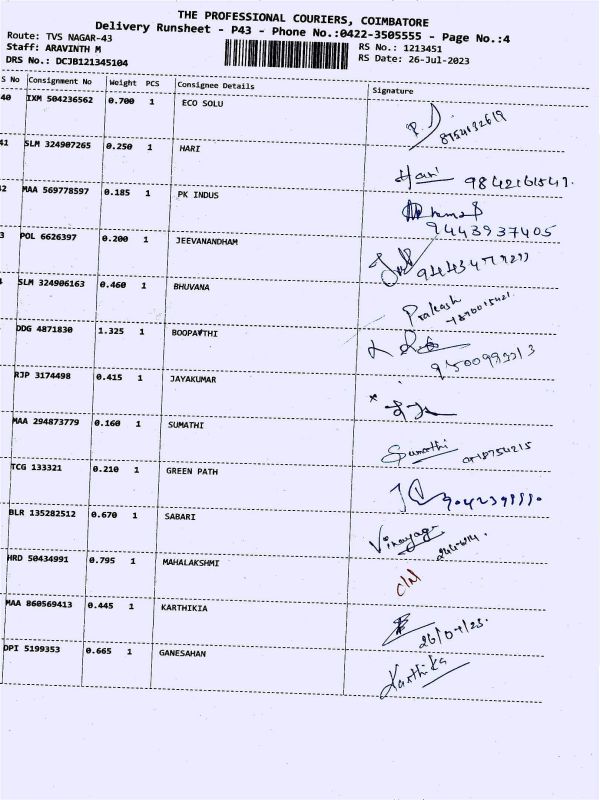 THE PROFESSIONAL COURIERS, COIMBATORE
Delivery Runsheet - P43 - Phone No.:0422-3505555 - Page No.:4
Route: TVS NAGAR-43
Staff: ARAVINTH M RS No.: 1213451
DRS No.: DCJB121345104 RS Date: 26-Jul-2023
S No Consignment No Weight PCS Consignee Details Signature
40 IXM 504236562 0.700 1 ECO SOLU
8754132619
41 SLM 324907265 0.250 1 HARI
Hari 9842161549.
MAA 569778597 0.185 1 PK INDUS
9443937405
POL 6626397 0.200 1 JEEVANANDHAM
SLM 324906163 0.460 1 BHUVANA
Prakash
DDG 4871830 1.325 1 BOOPATHI
RJP 3174498 0.415 1 JAYAKUMAR
MAA 294873779 0.160 1 SUMATHI
Sumathi
TCG 133321 0.210 1 GREEN PATH
BLR 135282512 0.670 1 SABARI
Vinayaga
HRD 50434991 0.795 1 MAHALAKSHMI
MAA 860569413 0.445 1 KARTHIKIA
26/07/23.
DPI 5199353 0.665 1 GANESAHAN
Karthika